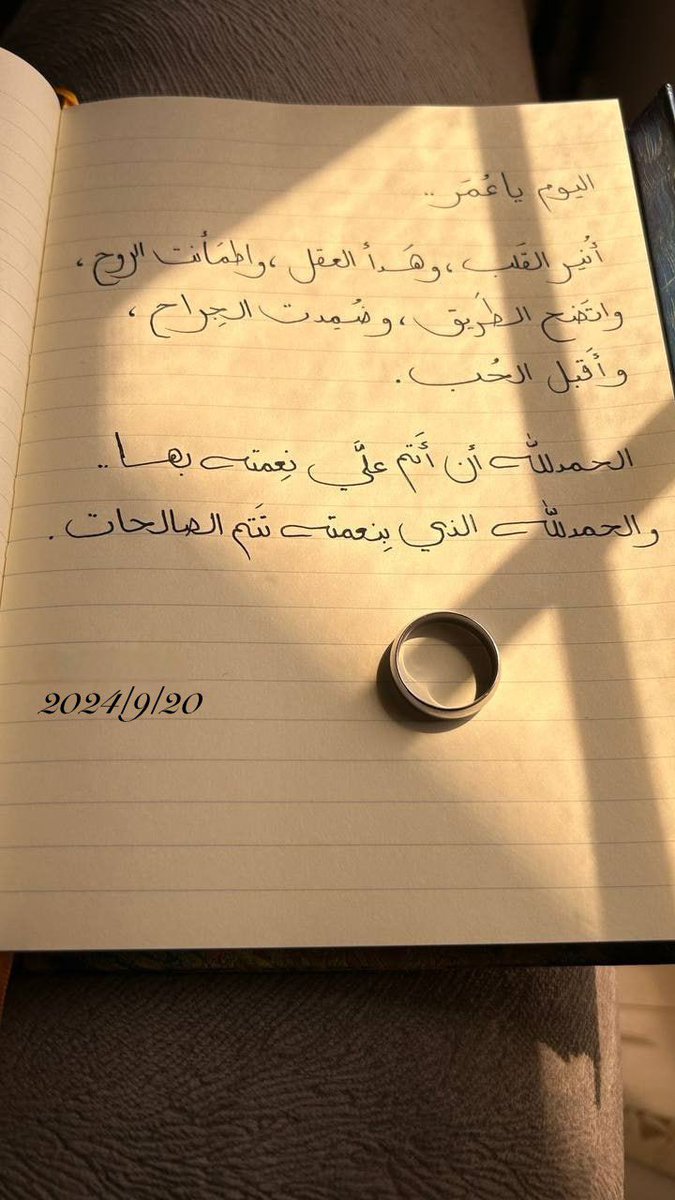 اليوم ياعُمَر..
أُنير القَلب، وهَدأ العقل، واطمَأنت الروح،
واتضَح الطَريق، وضُمِدت الجِراح،
وأَقبل الحُب.
الحمدلله أن أَتم علَّي نِعمته بها..
والحمدلله الذي بِنعمته تَتم الصالحات.
2024/9/20